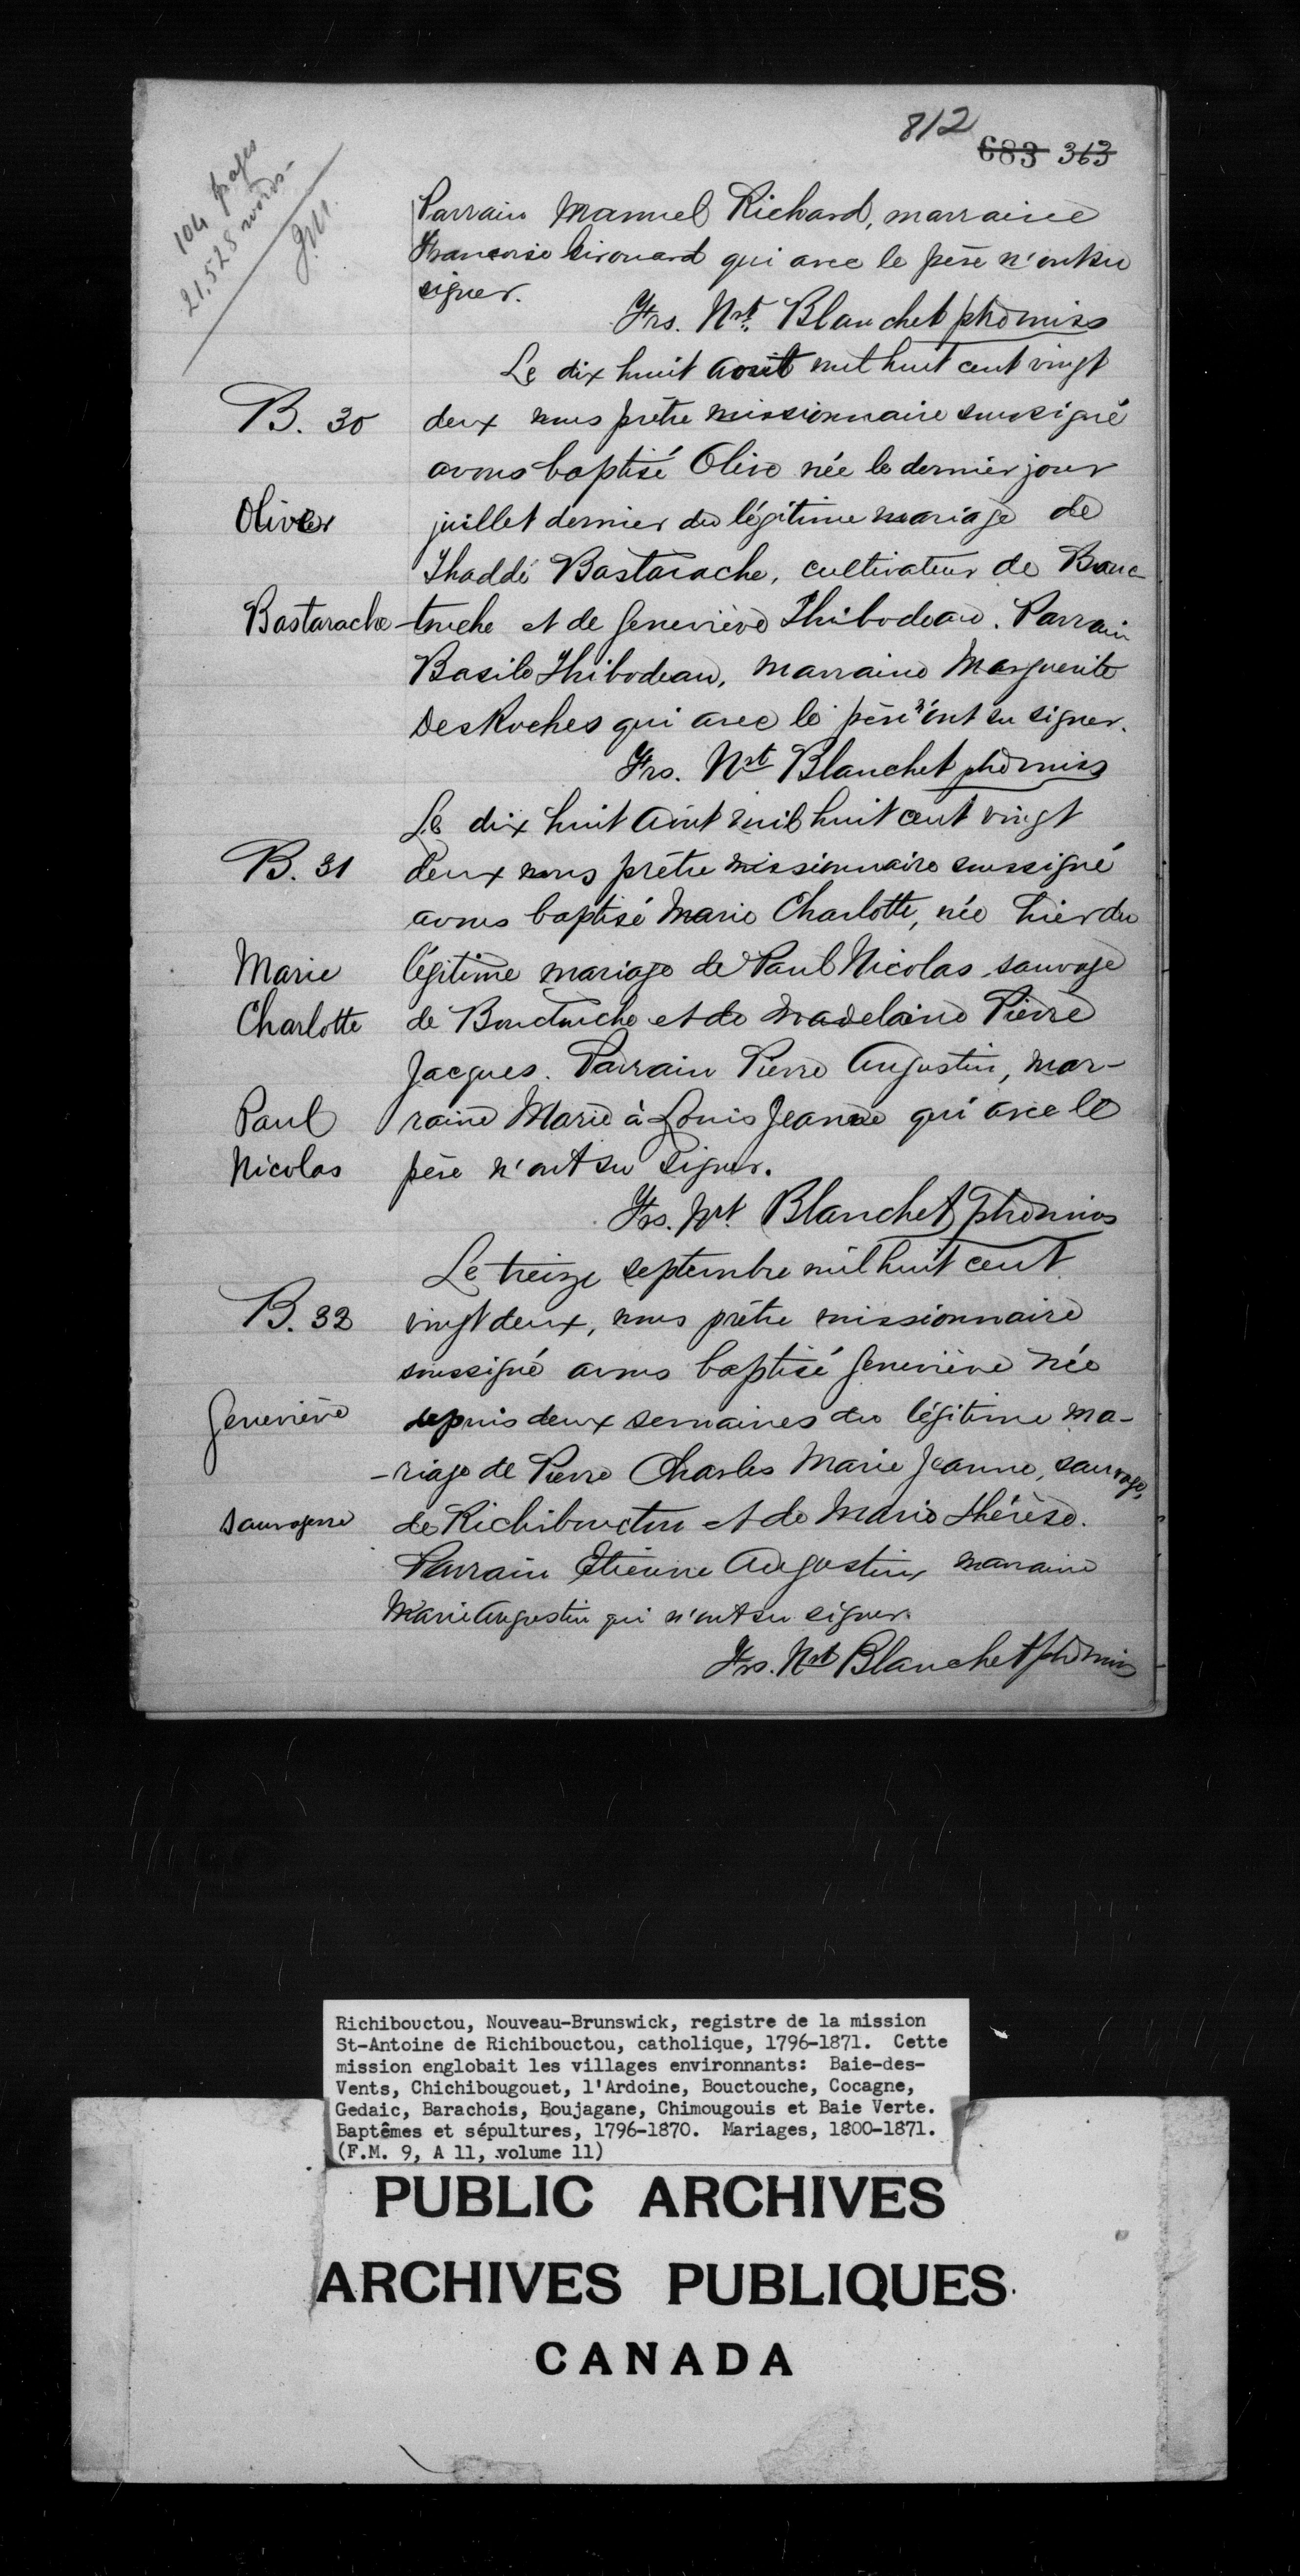 812
683 363
104 pages
21,528 words-
Parrain Manuel Richard, marraine
Francoise Girouard qui avec le père n'ont su
signer.
Frs. Nrt. Blanchet ptre miss
Le dix huit août mil huit cent vingt
B. 30 deux nous prêtre missionnaire soussigné
avons baptisé Olive née le dernier jour
Olivier juillet dernier du légitime mariage de
Thaddé Bastarache, cultivateur de Bouc-
Bastarache touche et de Geneviève Thibodeau. Parrain
Basile Thibodeau, marraine Marguerite
DesRoches qui avec le père n'ont su signer.
Frs. Nrt Blanchet ptre miss
Le dix huit Aout mil huit cent vingt
B. 31 deux nous prêtre missionnaire soussigné
avons baptisé Marie Charlotte, née hier du
Marie légitime mariage de Paul Nicolas sauvage
Charlotte de Bouctouche et de Madelaine Pierre
Jacques. Parrain Pierre Augustin, mar-
Paul raine Marie à Louis Jeanne qui avec le
Nicolas père n'ont su signer.
Frs. Nrt. Blanchet ptre miss
Le treize septembre mil huit cent
B. 32 vingt deux, nous prêtre missionnaire
soussigné avons baptisé Geneviève née
Geneviève depuis deux semaines du légitime ma-
-riage de Pierre Charles Marie Jeanne, sauvage,
sauvagesse de Richibouctou et de Marie Thérèse.
Parrain Etienne Augustin, marraine
Marie Augustin qui n'ont su signer.
Frs. Nrt Blanchet ptre miss
Richibouctou, Nouveau-Brunswick, registre de la mission
St-Antoine de Richibouctou, catholique, 1796-1871. Cette
mission englobait les villages environnants: Baie-des-
Vents, Chichibougouet, l'Ardoine, Bouctouche, Cocagne,
Gedaic, Barachois, Boujagane, Chimougouis et Baie Verte.
Baptêmes et sépultures, 1796-1870. Mariages, 1800-1871.
(F.M. 9, A 11, volume 11)
PUBLIC ARCHIVES
ARCHIVES PUBLIQUES
CANADA